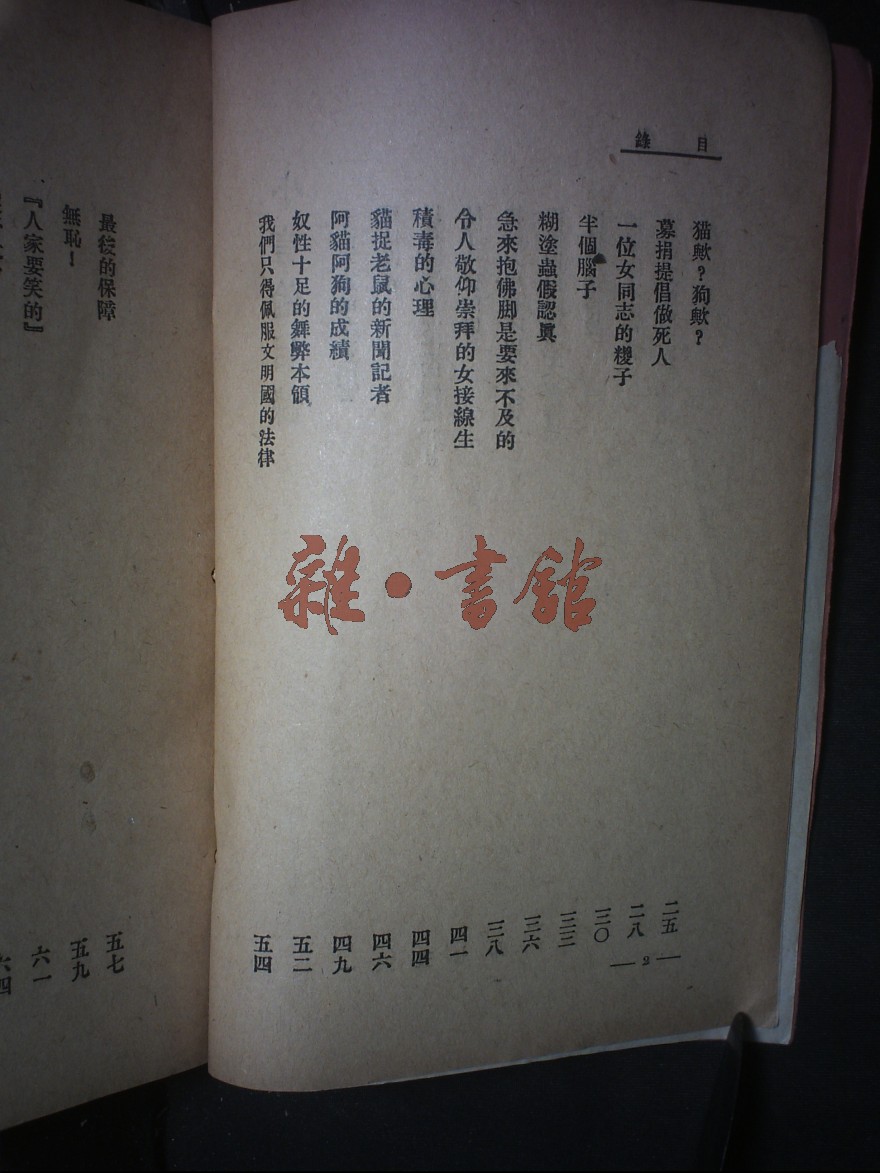 目錄
猫歟？狗歟？ 二五
募捐提倡做死人 二八
一位女同志的糉子 三〇
半個腦子 三三
糊塗蟲假認眞 三六
急來抱佛脚是要來不及的 三八
令人敬仰崇拜的女接線生 四一
積毒的心理 四四
貓捉老鼠的新聞記者 四六
阿貓阿狗的成績 四九
奴性十足的舞弊本領 五二
我們只得佩服文明國的法律 五四
— 2 —
最後的保障 五七
無恥！ 五九
『人家要笑的』 六一
六四
雜·書館